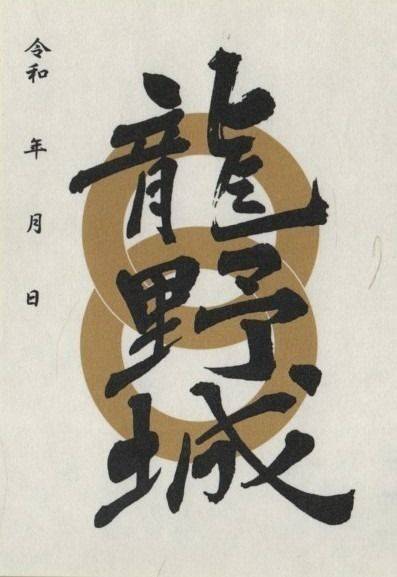 龍野城
令和 年 月 日